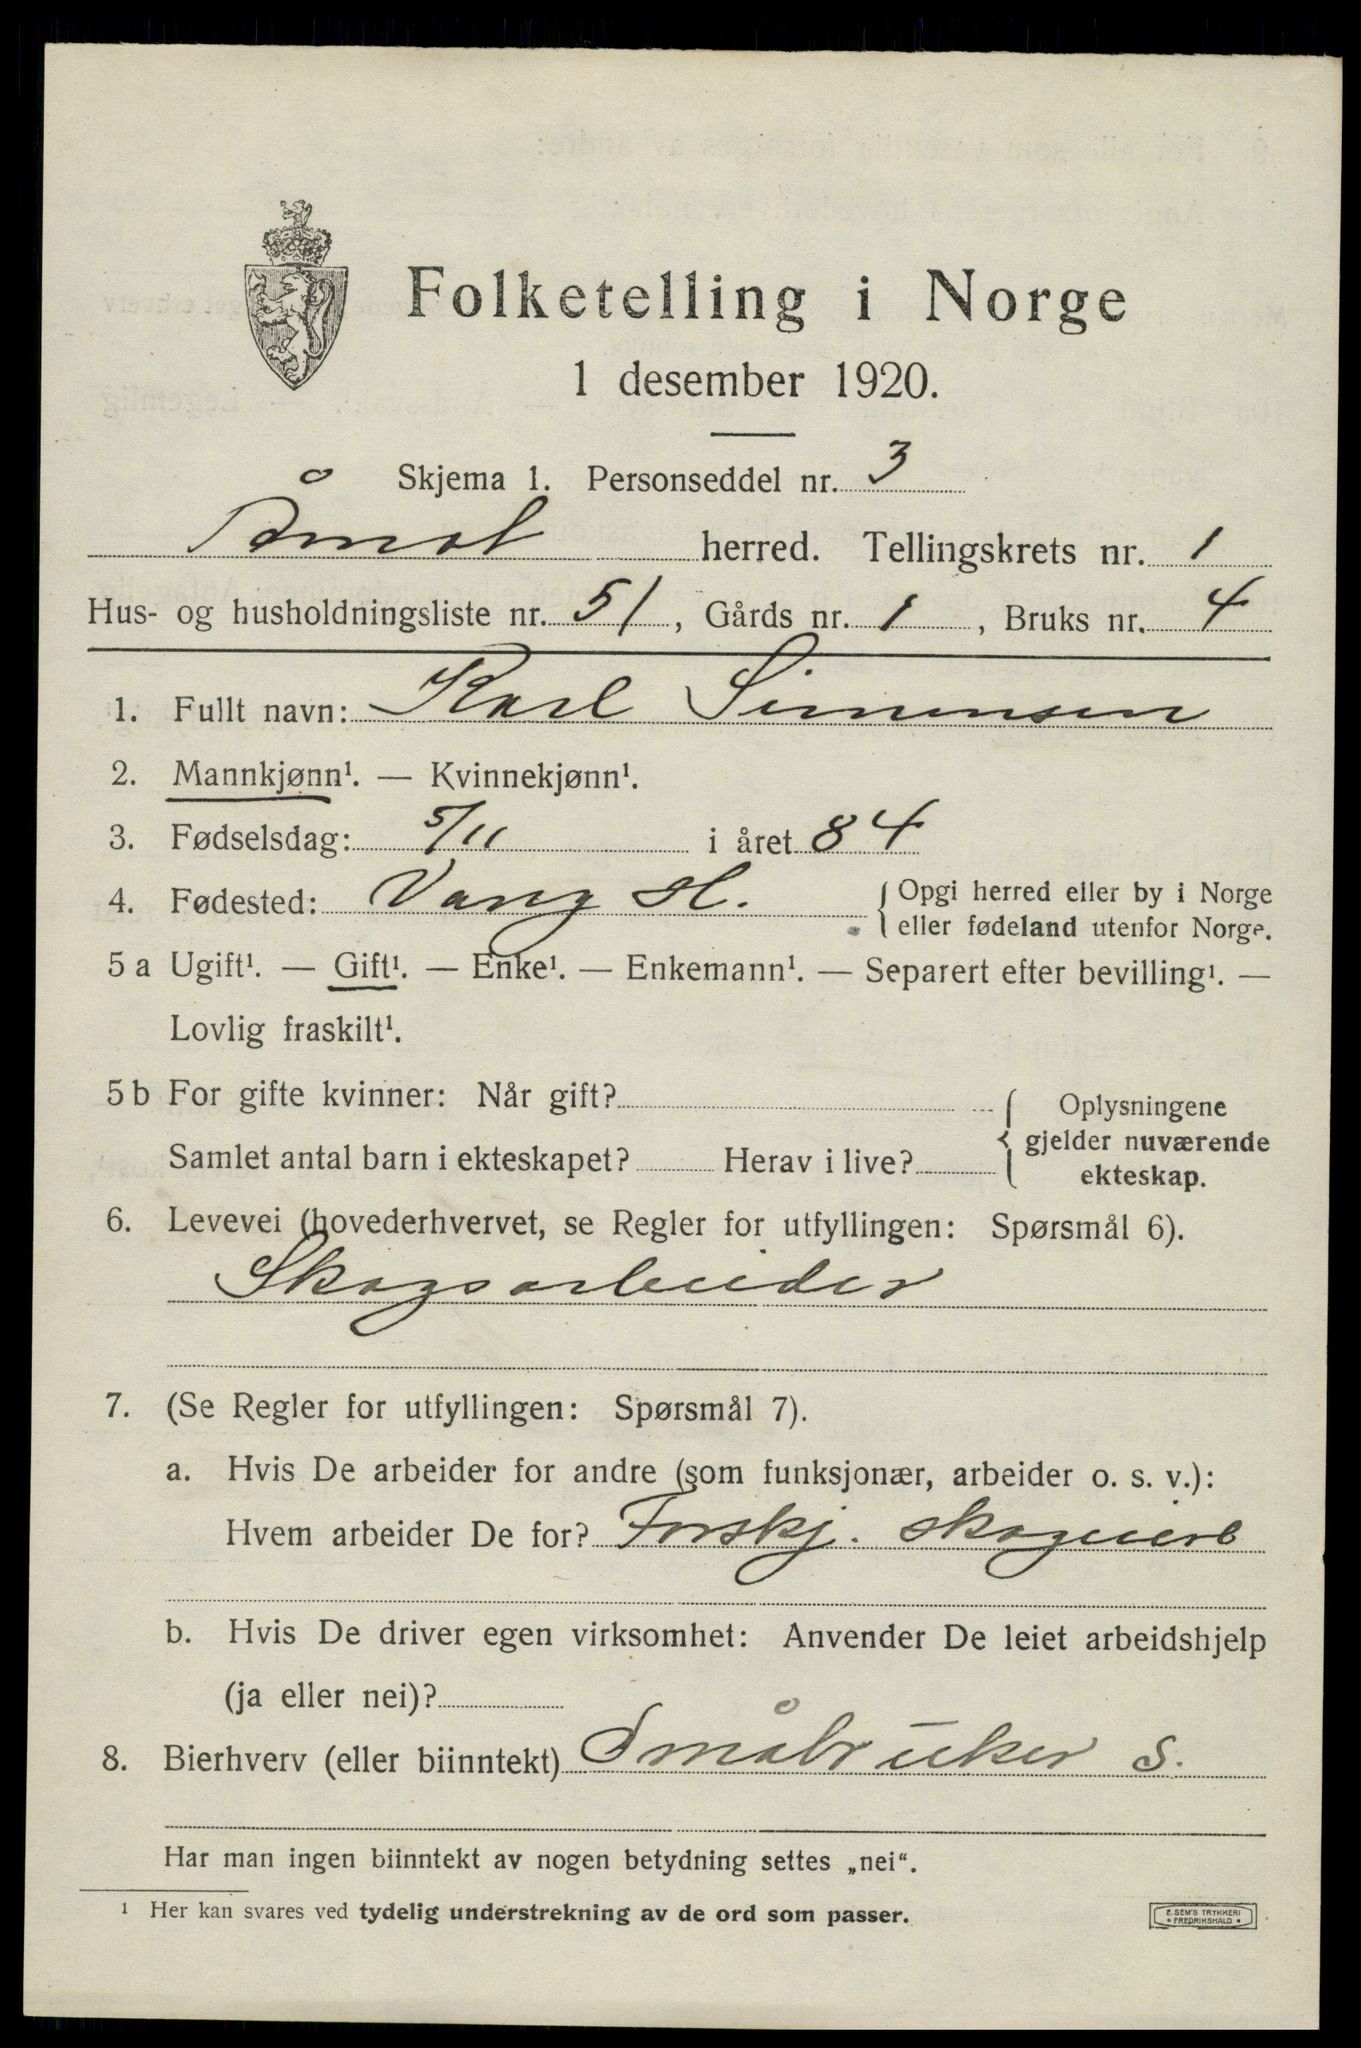 Folketelling i Norge
1 desember 1920.
Skjema 1. Personseddel nr. 3
Åmot herred. Tellingskrets nr. 1
Hus- og husholdningsliste nr. 51, Gårds nr. 1, Bruks nr. 4
1. Fullt navn: Karl Simensen
2. Mannkjønn¹. — Kvinnekjønn¹.
3. Fødselsdag: 5/11 i året 84
4. Fødested: Vang H. Opgi herred eller by i Norge
eller fødeland utenfor Norge.
5 a Ugift¹. — Gift¹. — Enke¹. — Enkemann¹. — Separert efter bevilling¹. —
Lovlig fraskilt¹.
5 b For gifte kvinner: Når gift?
Samlet antal barn i ekteskapet? Herav i live?
Oplysningene
gjelder nuværende
ekteskap.
6. Levevei (hovederhvervet, se Regler for utfyllingen: Spørsmål 6).
Skogsarbeider
7. (Se Regler for utfyllingen: Spørsmål 7).
a. Hvis De arbeider for andre (som funksjonær, arbeider o. s. v.):
Hvem arbeider De for? Forskj. skogeiere
b. Hvis De driver egen virksomhet: Anvender De leiet arbeidshjelp
(ja eller nei)?
8. Bierhverv (eller biinntekt) Småbruker s.
Har man ingen biinntekt av nogen betydning settes „nei“.
¹ Her kan svares ved tydelig understrekning av de ord som passer.
E. SEM'S TRYKKERI
FREDRIKSHALD